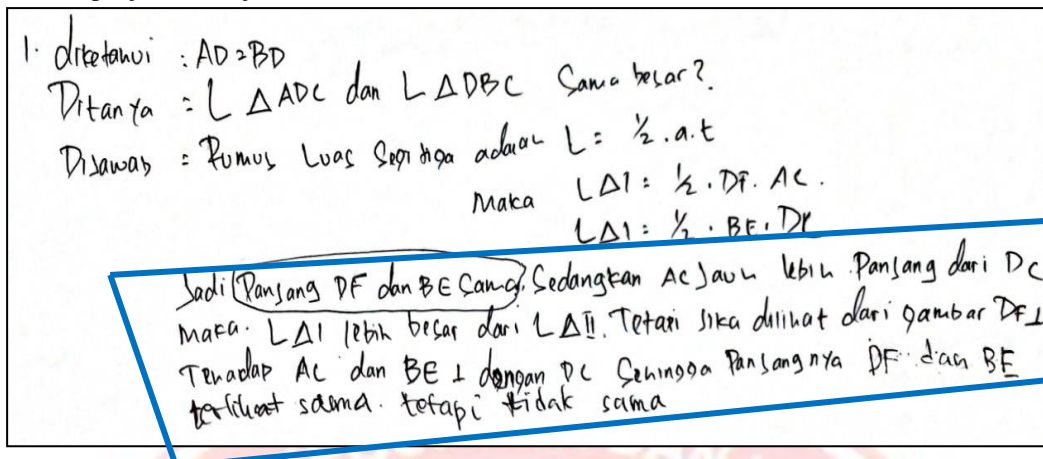 1. diketahui : AD = BD
Ditanya : L Δ ADC dan L Δ DBC Sama besar?
Dijawab : Rumus Luas Segitiga adalah L = ½ . a . t
Maka LΔ1 = ½ . DF . AC .
LΔ1 = ½ . BE . DC
Jadi Panjang DF dan BE Sama. Sedangkan AC Jauh lebih Panjang dari DC
Maka. LΔI lebih besar dari LΔII. Tetapi jika dilihat dari gambar DF ⊥
Terhadap AC dan BE ⊥ dengan DC Sehingga Panjangnya DF dan BE
terlihat sama. tetapi tidak sama